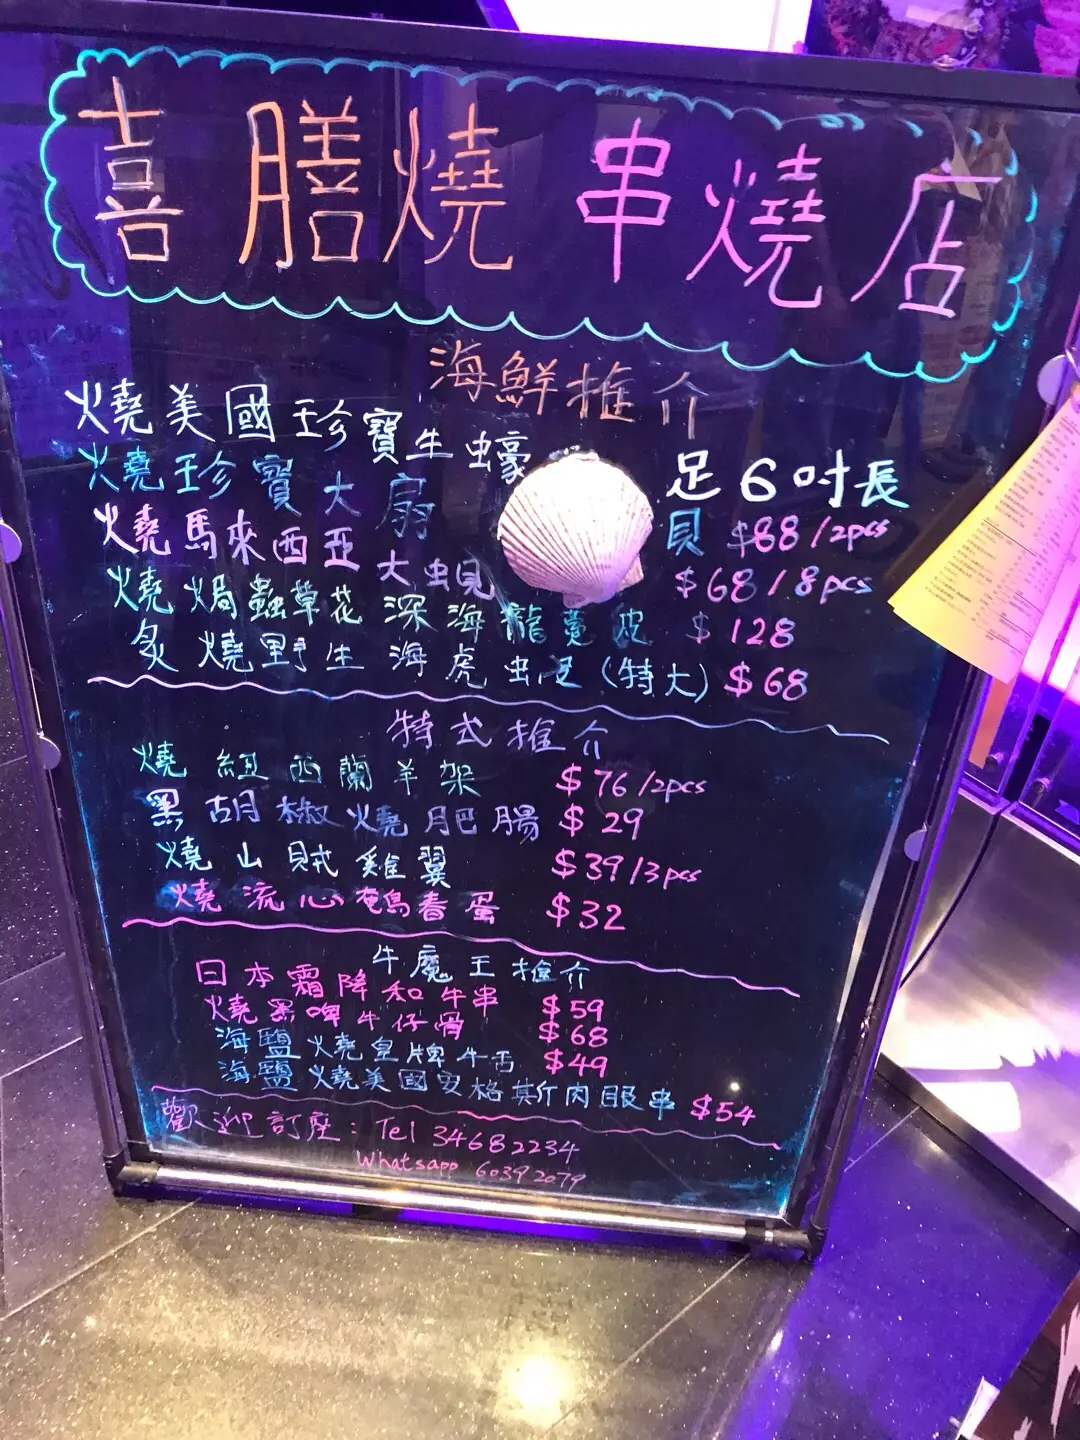 喜膳燒 串燒店
海鮮推介
燒美國珍寶生蠔 足6吋長
燒珍寶大扇貝 $88/2pcs
燒馬來西亞大蜆 $68/8pcs
燒焗蟲草花深海龍躉皮 $128
炙燒野生海虎蝦(特大) $68
特式推介
燒紐西蘭羊架 $76/2pcs
黑胡椒燒肥腸 $29
燒山賊雞翼 $39/3pcs
燒流心鵪鶉蛋 $32
牛魔王推介
日本霜降和牛串 $59
燒黑啤牛仔骨 $68
海鹽燒皇牌牛舌 $49
海鹽燒美國安格斯肉眼串 $54
歡迎訂座：Tel 34682234
Whatsapp 60392079